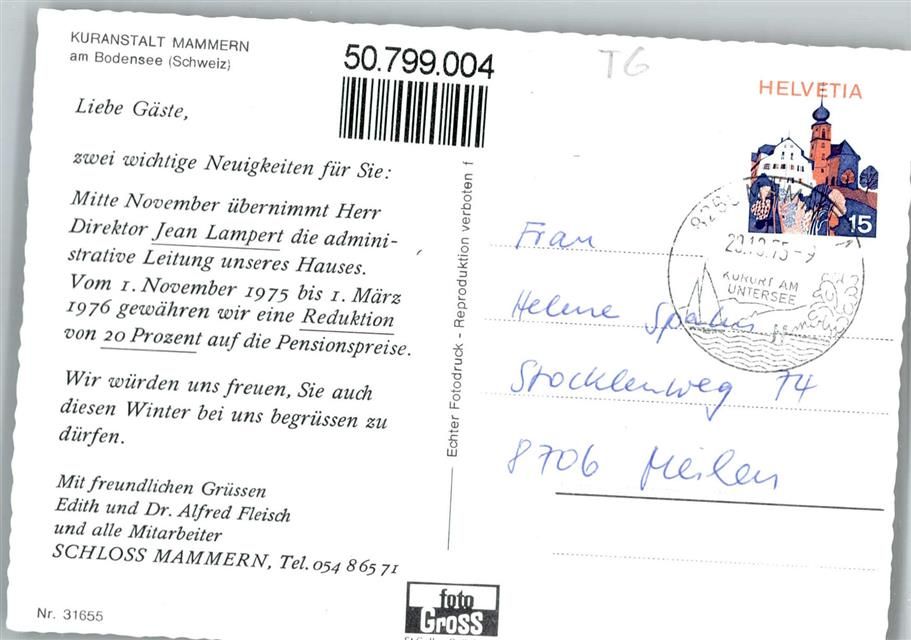 KURANSTALT MAMMERN
am Bodensee (Schweiz)
Liebe Gäste,
zwei wichtige Neuigkeiten für Sie:
Mitte November übernimmt Herr
Direktor Jean Lampert die admini-
strative Leitung unseres Hauses.
Vom 1. November 1975 bis 1. März
1976 gewähren wir eine Reduktion
von 20 Prozent auf die Pensionspreise.
Wir würden uns freuen, Sie auch
diesen Winter bei uns begrüssen zu
dürfen.
Mit freundlichen Grüssen
Edith und Dr. Alfred Fleisch
und alle Mitarbeiter
SCHLOSS MAMMERN, Tel. 054 8 65 71
Nr. 31655
50.799.004
Echter Fotodruck - Reproduktion verboten f
foto
Gross
TG
HELVETIA
15
KURORT AM
UNTERSEE
Frau
Helene
Stocklenweg 74
8706 Meilen